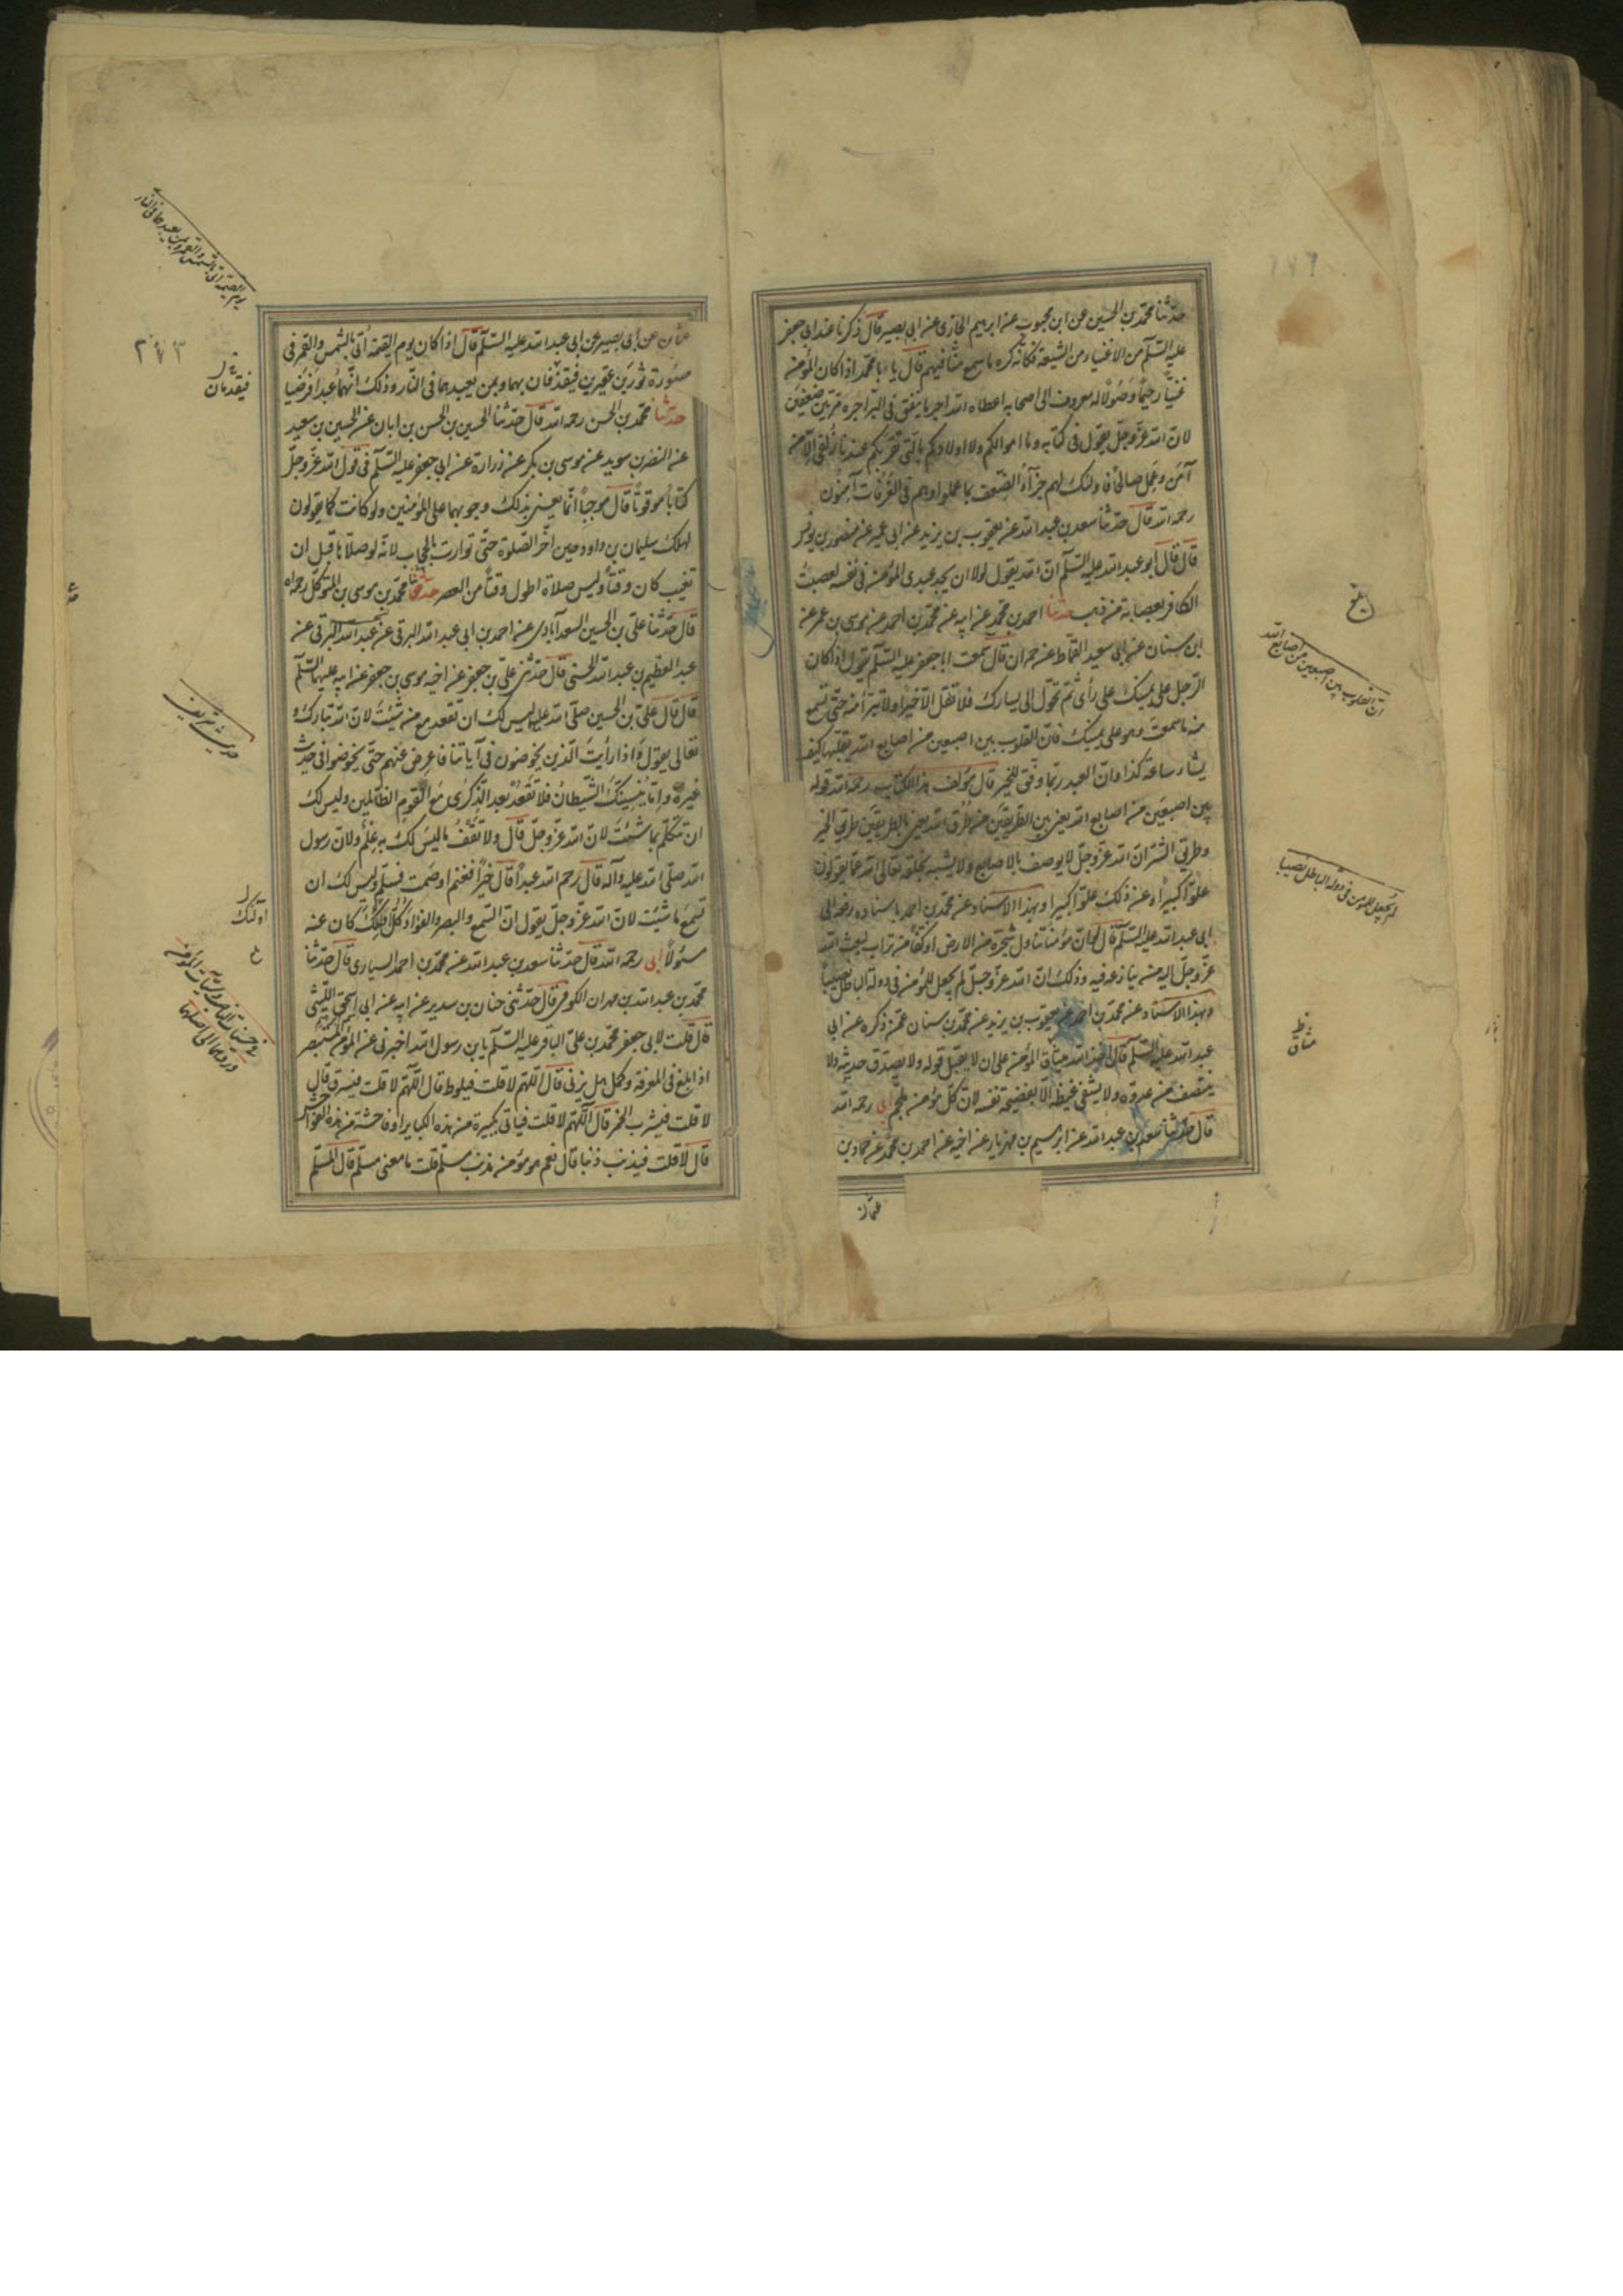 حدثنا محمد بن الحسين عن ابن محبوب عن ابرهيم الجازى عن ابى بصير قال ذكرنا عند ابى جعفر
عليه السلام من الاغنياء من الشيعة فكانه كره ما سمع منا فيهم قال يا با محمد اذا كان المؤمن
غنيا رحيما وصولا له معروف الى اصحابه اعطاه الله اجر ما ينفق فى البر اجره مرتين ضعفين
لان الله عز وجل يقول فى كتابه وما اموالكم ولا اولادكم بالتى تقربكم عندنا زلفى الا من
آمن وعمل صالحا فاولئك لهم جزآء الضعف بما عملوا وهم فى الغرفات آمنون ابى
رحمه الله قال حدثنا سعد بن عبد الله عن يعقوب بن يزيد عن ابى عمير عن منصور بن يونس
قال قال ابو عبد الله عليه السلام ان الله يقول لولا ان يجد عبدى المؤمن فى نفسه لعصبت
الكافر بعصابة من ذهب حدثنا احمد بن محمد عن ابيه عن محمد بن احمد عن موسى بن عمر عن
ابن سنان عن ابى سعيد القماط عن حمران قال سمعت ابا جعفر عليه السلم يقول اذا كان
الرجل على يمينك على رأى ثم تحول الى يسارك فلا تقل الا خيرا ولا تبرأ منه حتى تسمع
منه ما سمعت وهو على يمينك فان القلوب بين اصبعين من اصابع الله يقلبها كيف
يشاء ساعة كذا وان العبد ربما وفق للخير قال مؤلف هذا الكتاب رحمه الله قوله
بين اصبعين من اصابع الله يعنى بين الطريقين من طرق الله يعنى بالطريقين طريق الخير
وطريق الشر ان الله عز وجل لا يوصف بالاصابع ولا يشبه بخلقه تعالى الله عما يقولون
علوا كبيرا وعن ذلك علوا كبيرا وبهذا الاسناد عن محمد بن احمد باسناده رفعه الى
ابى عبد الله عليه السلم قال لو ان مؤمنا تناول شجرة من الارض او كفا من تراب لبعث الله
عز وجل اليه من ينازعه فيه وذلك ان الله عز وجل لم يجعل للمؤمن فى دولة الباطل نصيبا
وبهذا الاسناد عن محمد بن احمد عن يعقوب بن يزيد عن محمد بن سنان عمن ذكره عن ابى
عبد الله عليه السلم قال اخذ الله ميثاق المؤمن على ان لا يقبل قوله ولا يصدق حديثه ولا
ينتصف من عدوه ولا يشفى غيظه الا بفضيحة نفسه لان كل مؤمن ملجم ابى رحمه الله
قال حدثنا سعد بن عبد الله عن ابرهيم بن مهزيار عن اخيه عن احمد بن محمد عن حماد بن
عثمان
ان القلوب بين اصبعين من اصابع الله
لم يجعل للمؤمن فى دولة الباطل نصيبا
ميثاق
عثمان عن ابى بصير عن ابى عبد الله عليه السلام قال اذا كان يوم القيمة أتى بالشمس والقمر فى
صورة ثورين عقيرين فيقذفان بهما وبمن يعبدهما فى النار وذلك انهما عبدا فرضيا
حدثنا محمد بن الحسن رحمه الله قال حدثنا الحسين بن الحسن بن ابان عن الحسين بن سعيد
عن النضر بن سويد عن موسى بن بكر عن زرارة عن ابى جعفر عليه السلم فى قول الله عز وجل
كتابا موقوتا قال موجبا انما يعنى بذلك وجوبهما على المؤمنين ولو كانت كما يقولون
لهلك سليمان بن داود حين اخر الصلوة حتى توارت بالحجاب لانه لو صلاها قبل ان
تغيب كان وقتا وليس صلاة اطول وقتا من العصر حدثنا محمد بن موسى بن المتوكل رحمه الله
قال حدثنا على بن الحسين السعدآبادى عن احمد بن ابى عبد الله البرقى عن عبد الله البرقى عن
عبد العظيم بن عبد الله الحسنى قال حدثنى على بن جعفر عن اخيه موسى بن جعفر عن ابيه عليهما السلم
قال قال على بن الحسين صلى الله عليهما ليس لك ان تقعد مع من شئت لان الله تبارك و
تعالى يقول واذا رأيت الذين يخوضون فى آياتنا فاعرض عنهم حتى يخوضوا فى حديث
غيره واما ينسينك الشيطان فلا تقعد بعد الذكرى مع القوم الظالمين وليس لك
ان تتكلم بما شئت لان الله عز وجل قال ولا تقف ما ليس لك به علم ولان رسول
الله صلى الله عليه وآله قال رحم الله عبدا قال خيرا فغنم او صمت فسلم وليس لك ان
تسمع ما شئت لان الله عز وجل يقول ان السمع والبصر والفؤاد كل ذلك كان عنه
مسئولا ابى رحمه الله قال حدثنا سعد بن عبد الله عن محمد بن احمد السيارى قال حدثنا
محمد بن عبد الله بن مهران الكوفى قال حدثنى حنان بن سدير عن ابيه عن ابى اسحق الليثى
قال قلت لابى جعفر محمد بن على الباقر عليه السلم يا بن رسول الله اخبرنى عن المؤمن المستبصر
اذا بلغ فى المعرفة وكمل هل يزنى قال اللهم لا قلت فيلوط قال اللهم لا قلت فيسرق قال
لا قلت فيشرب الخمر قال اللهم لا قلت فياتى بكبيرة من هذه الكباير او فاحشة من هذه الفواحش
قال لا قلت فيذنب ذنبا قال نعم هو مؤمن مذنب مسلم قلت ما معنى مسلم قال المسلم
فيقذفان
اولئك